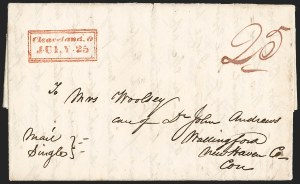 Cleaveland, O
JULY 25
25
To Mrs Woolsey
care of Dr John Andrews
Wallingford
New Haven Co
Con
Mail
Single